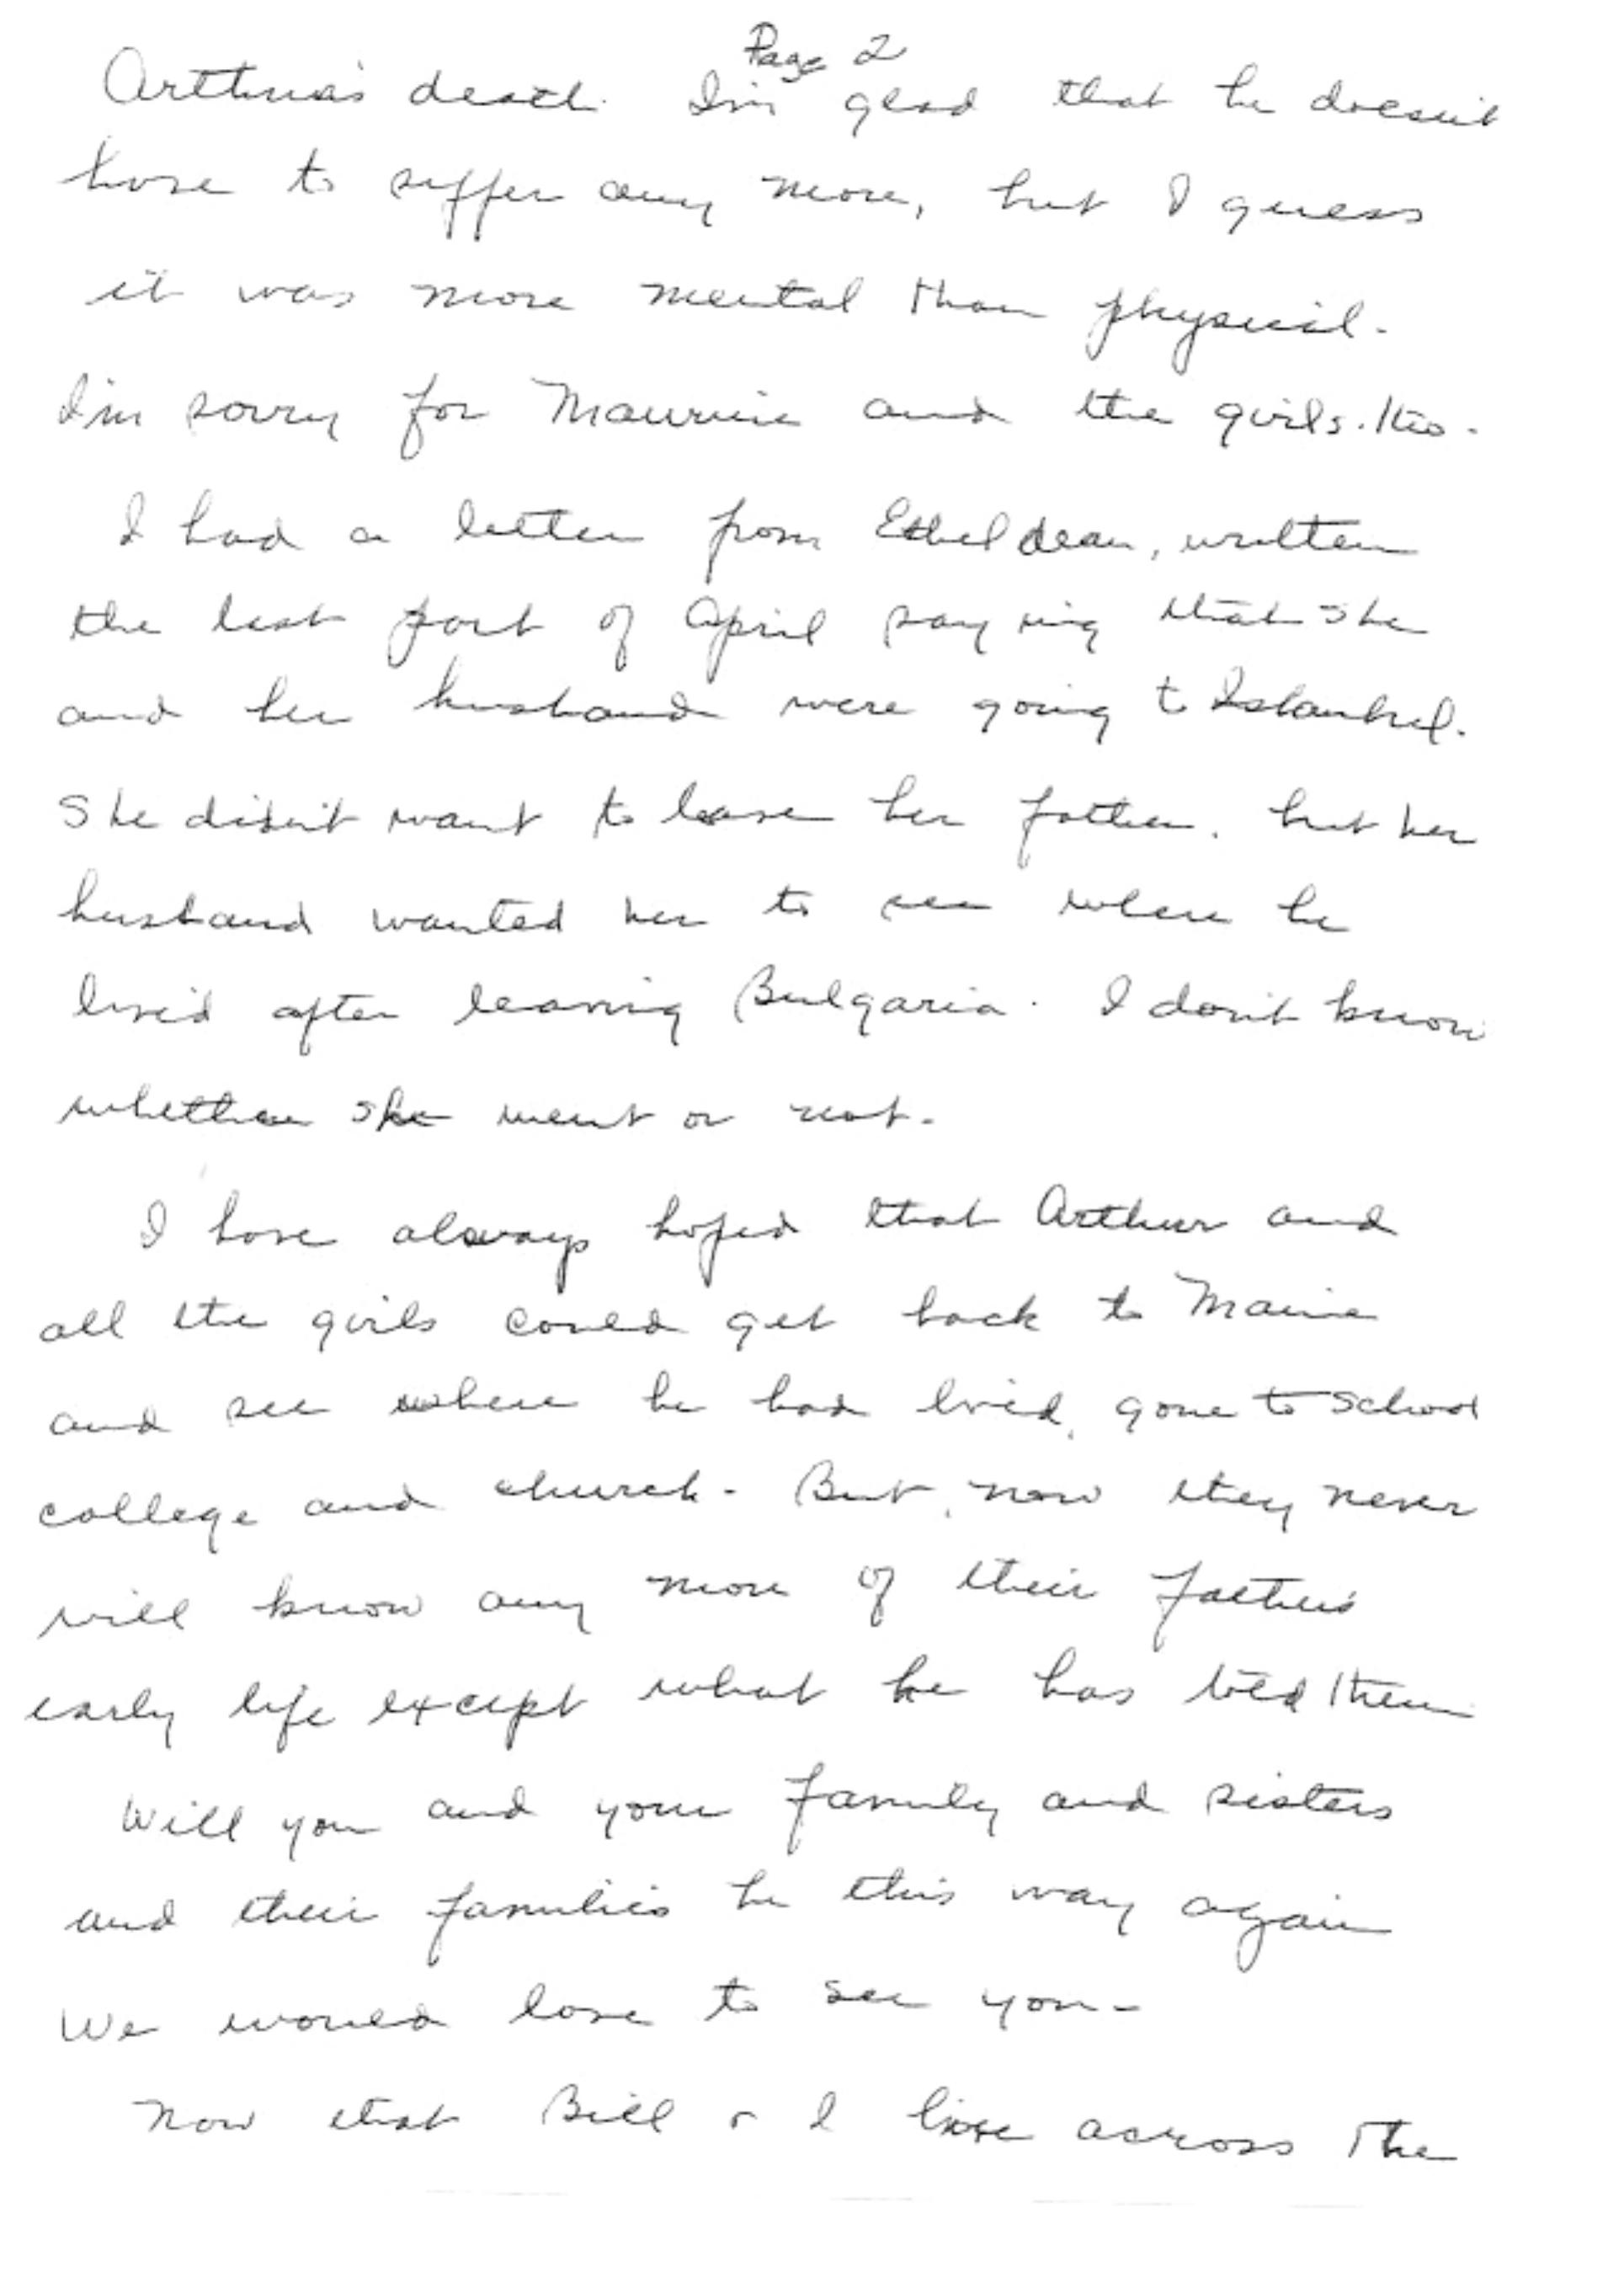 Page 2
Arthur's death. I'm glad that he doesn't
have to suffer any more, but I guess
it was more mental than physical.
I'm sorry for Maurine and the girls. too.
I had a letter from Ethel dean, written
the last part of April saying that she
and her husband were going to Istanbul.
She didn't want to leave her father. but her
husband wanted her to see where he
lived after leaving Bulgaria. I don't know
whether she went or not.
I have always hoped that Arthur and
all the girls could get back to Maine
and see where he had lived, gone to school
college and church - But, now they never
will know any more of their father's
early life except what he has told them
Will you and your family and sisters
and their families be this way again
We would love to see you -
Now that Bill & I live across the